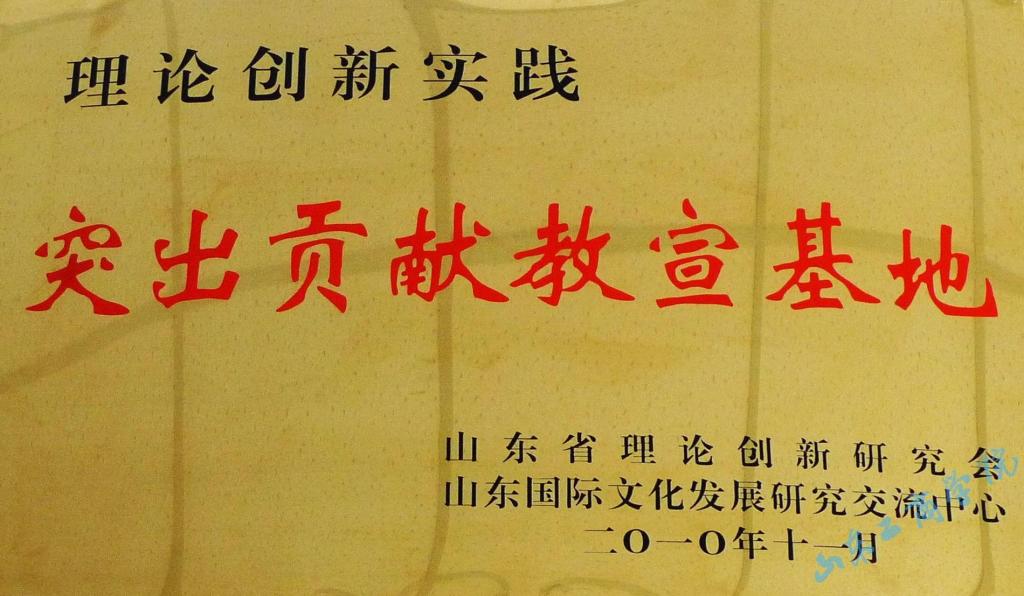 理论创新实践
突出贡献教宣基地
山东省理论创新研究会
山东国际文化发展研究交流中心
二〇一〇年十一月
山东工商学院